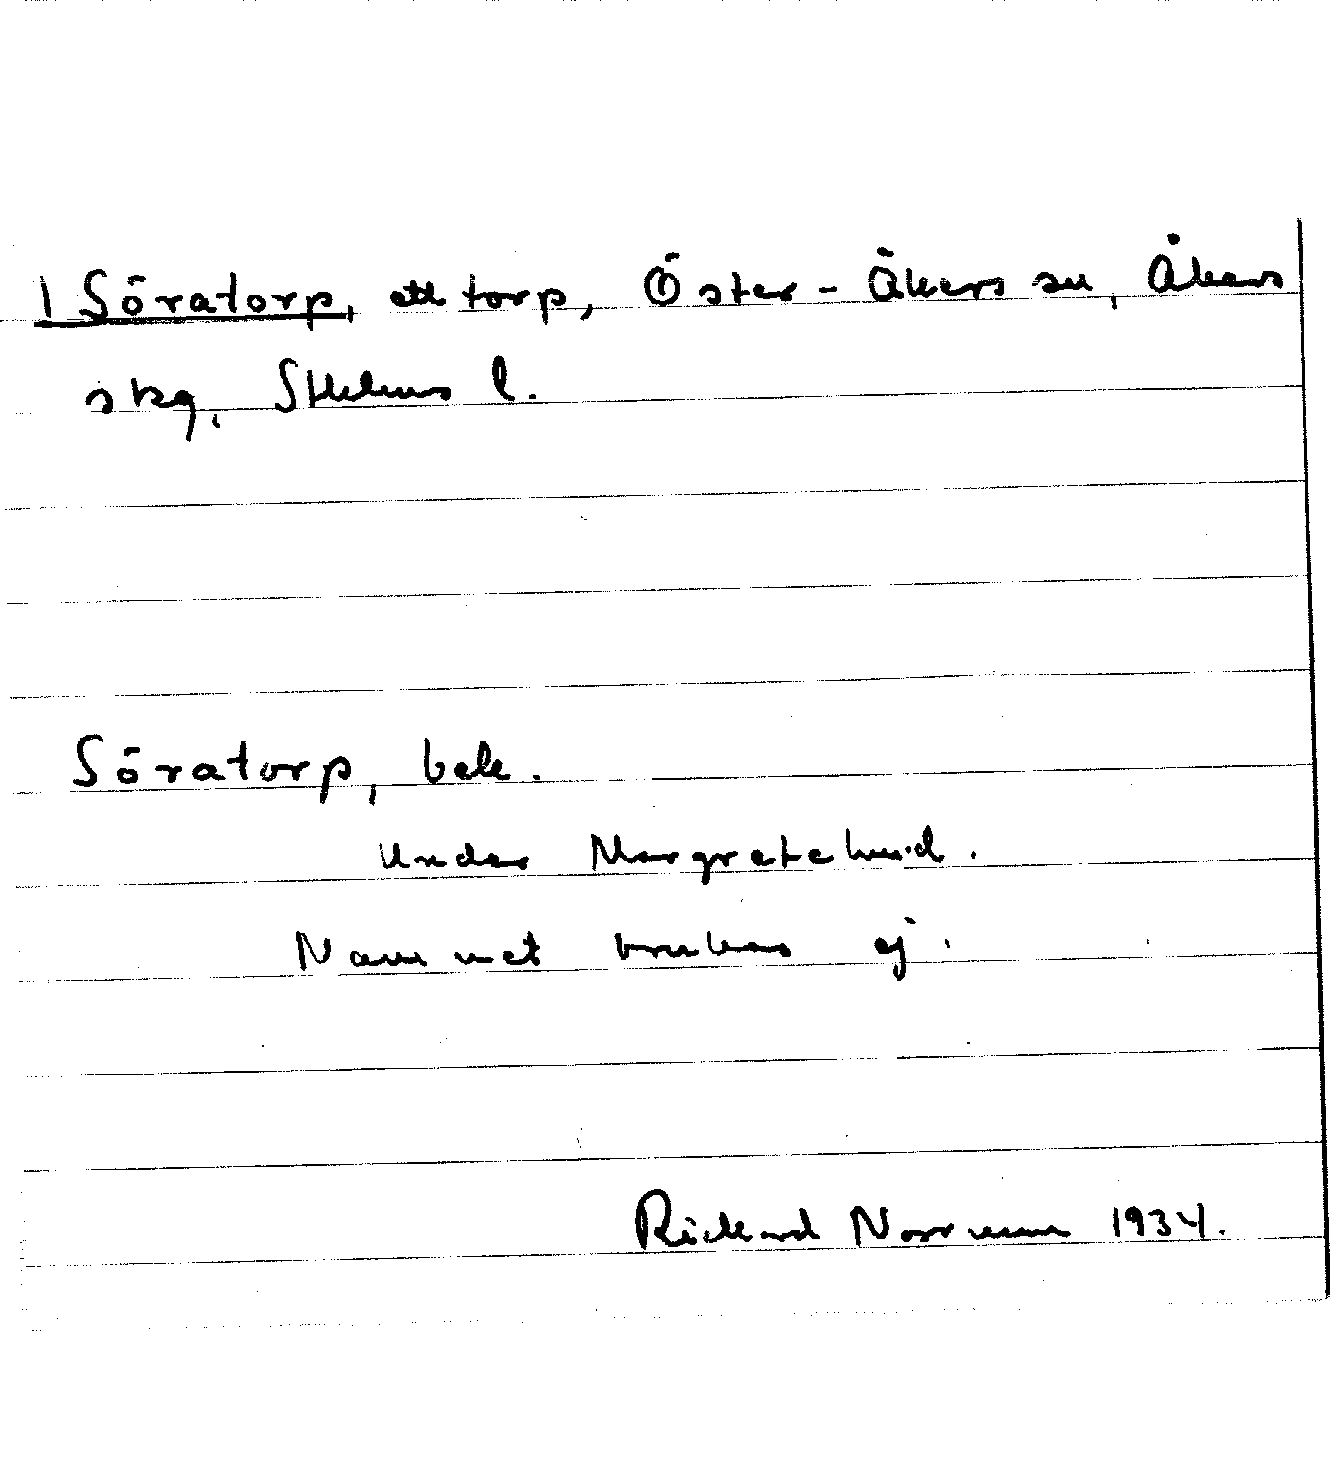 1 Söratorp, ett torp, Öster-Åkers sn, Åkers
skg, Sthlms l.
Söratorp, bek.
Under Margretelund.
Namnet brukas ej.
Rickard Norrman 1934.